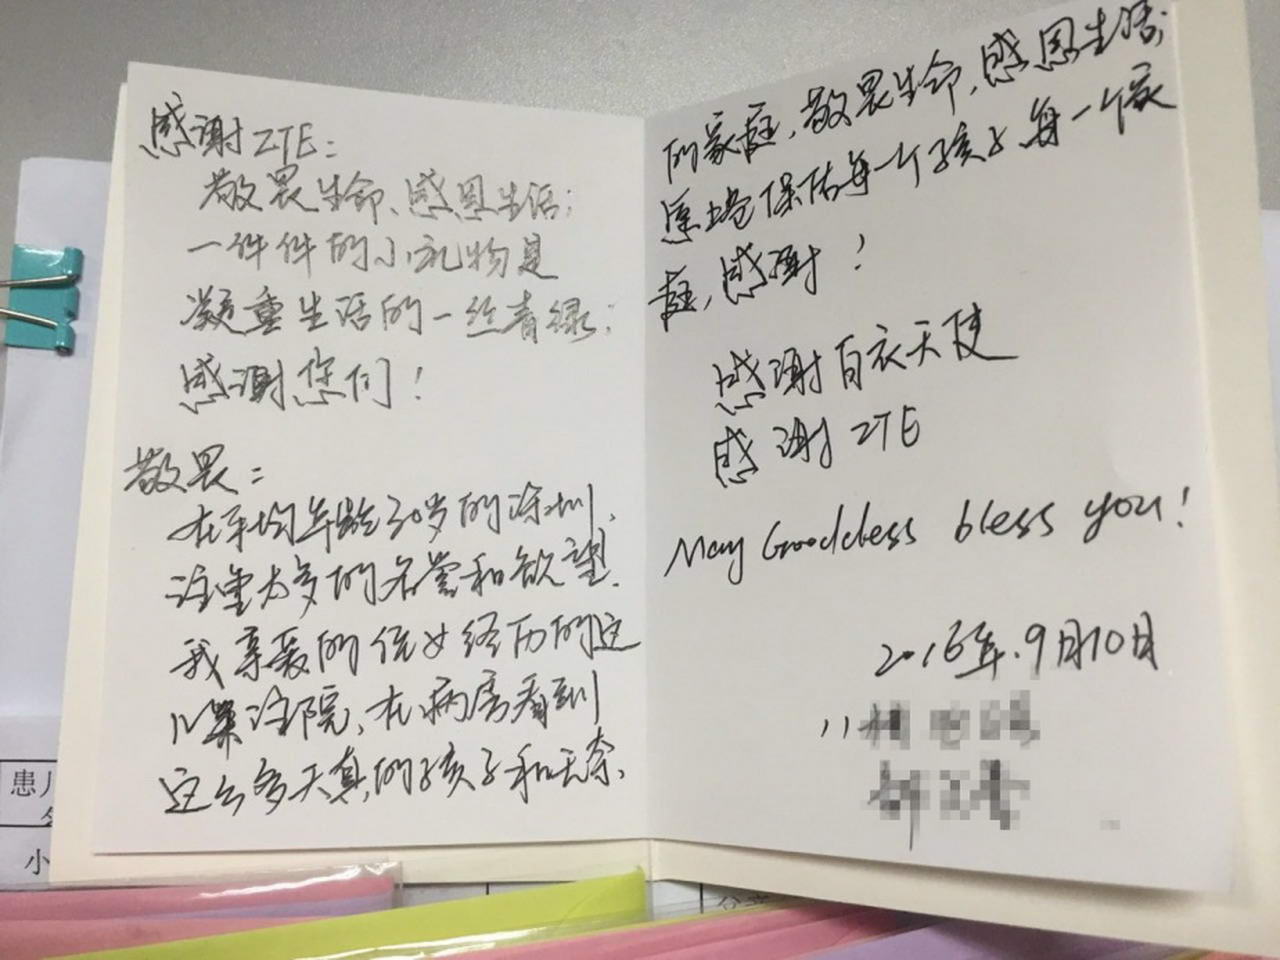 感谢ZTE：
敬畏生命、感恩生活；
一件件的小礼物是
凝重生活的一丝青绿；
感谢您们！
敬畏：
在平均年龄30岁的深圳、
注重太多的名誉和欲望.
我亲爱的侄女经历的这
儿算住院、在病房看到
这么多天真的孩子和无奈、
的家庭，敬畏生命、感恩生活；
保佑每一个孩子每一个家
庭，感谢！
感谢白衣天使
感谢ZTE
May Goodcless bless you!
2016年.9月10月
患儿
小